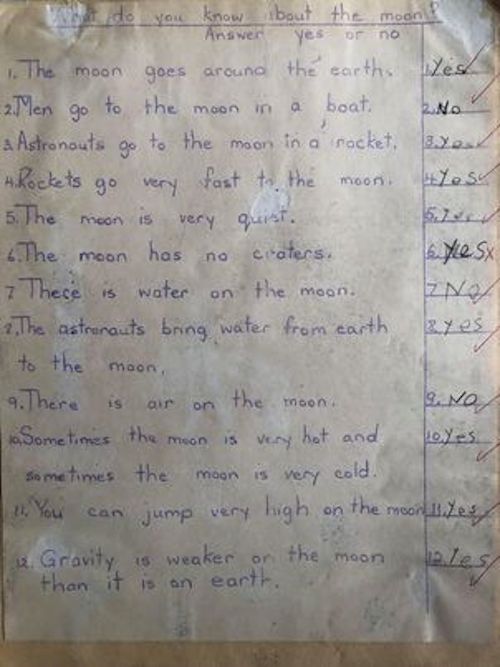 What do you know about the moon?
Answer yes or no
1. The moon goes around the earth. 1. Yes
2. Men go to the moon in a boat. 2. No
3. Astronauts go to the moon in a rocket. 3. Yes
4. Rockets go very fast to the moon. 4. Yes
5. The moon is very quiet. 5. Yes
6. The moon has no craters. 6. Yes x
7 There is water on the moon. 7. No
8. The astronauts bring water from earth 8. Yes
to the moon.
9. There is air on the moon. 9. NO
10. Sometimes the moon is very hot and 10. Yes
sometimes the moon is very cold.
11. You can jump very high on the moon 11. Yes
12. Gravity is weaker on the moon 12. Yes
than it is on earth.